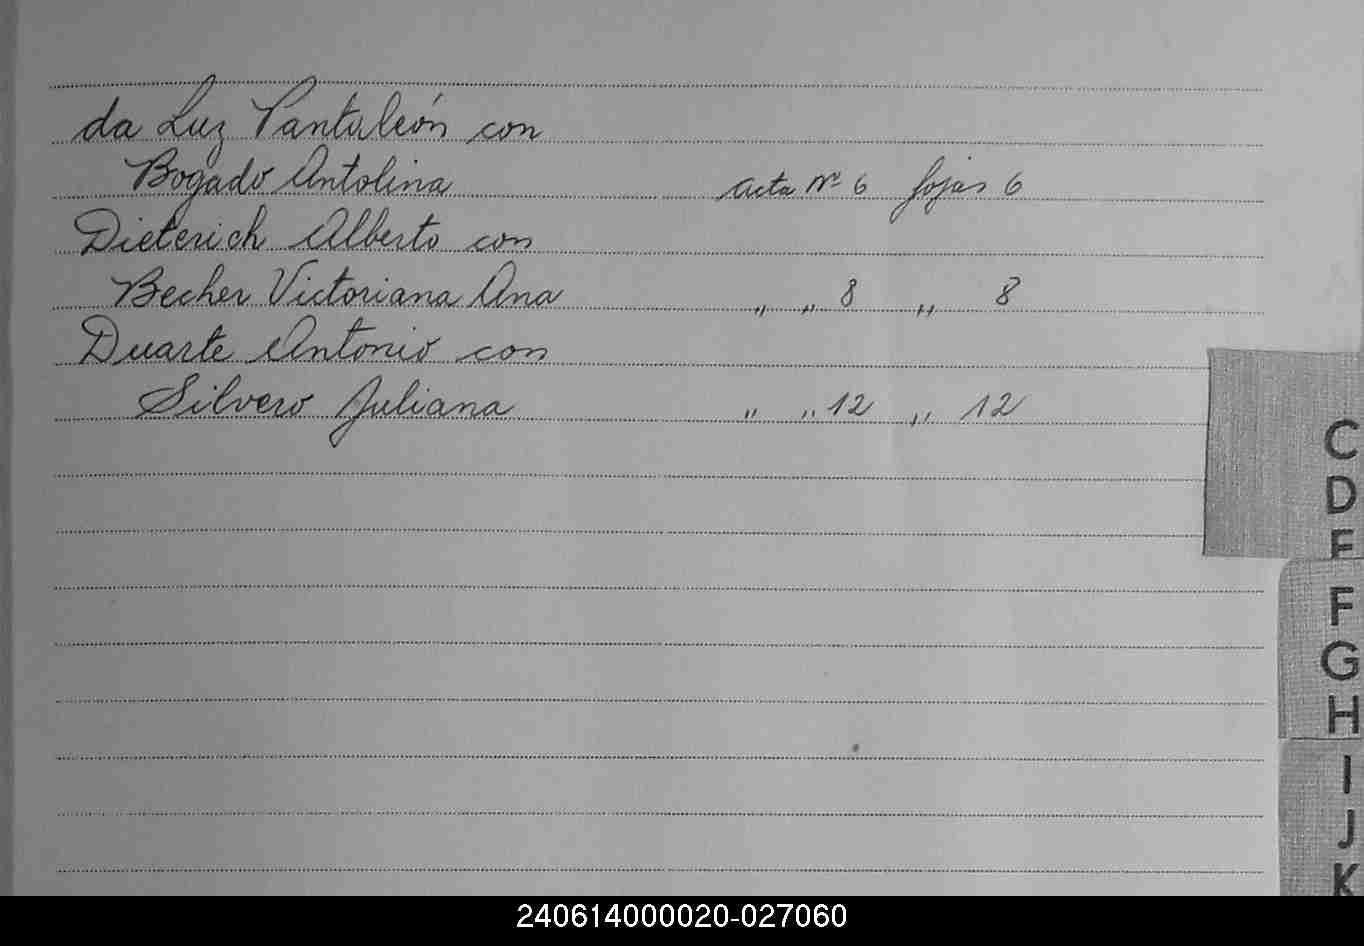 da Luz Pantaleón con
Bogado Antolina acta Nº 6 fojas 6
Dieterich Alberto con
Becher Victoriana Ana " " 8 " 8
Duarte Antonio con
Silvero Juliana " " 12 " 12
C
D
E
F
G
H
I
J
K
240614000020-027060